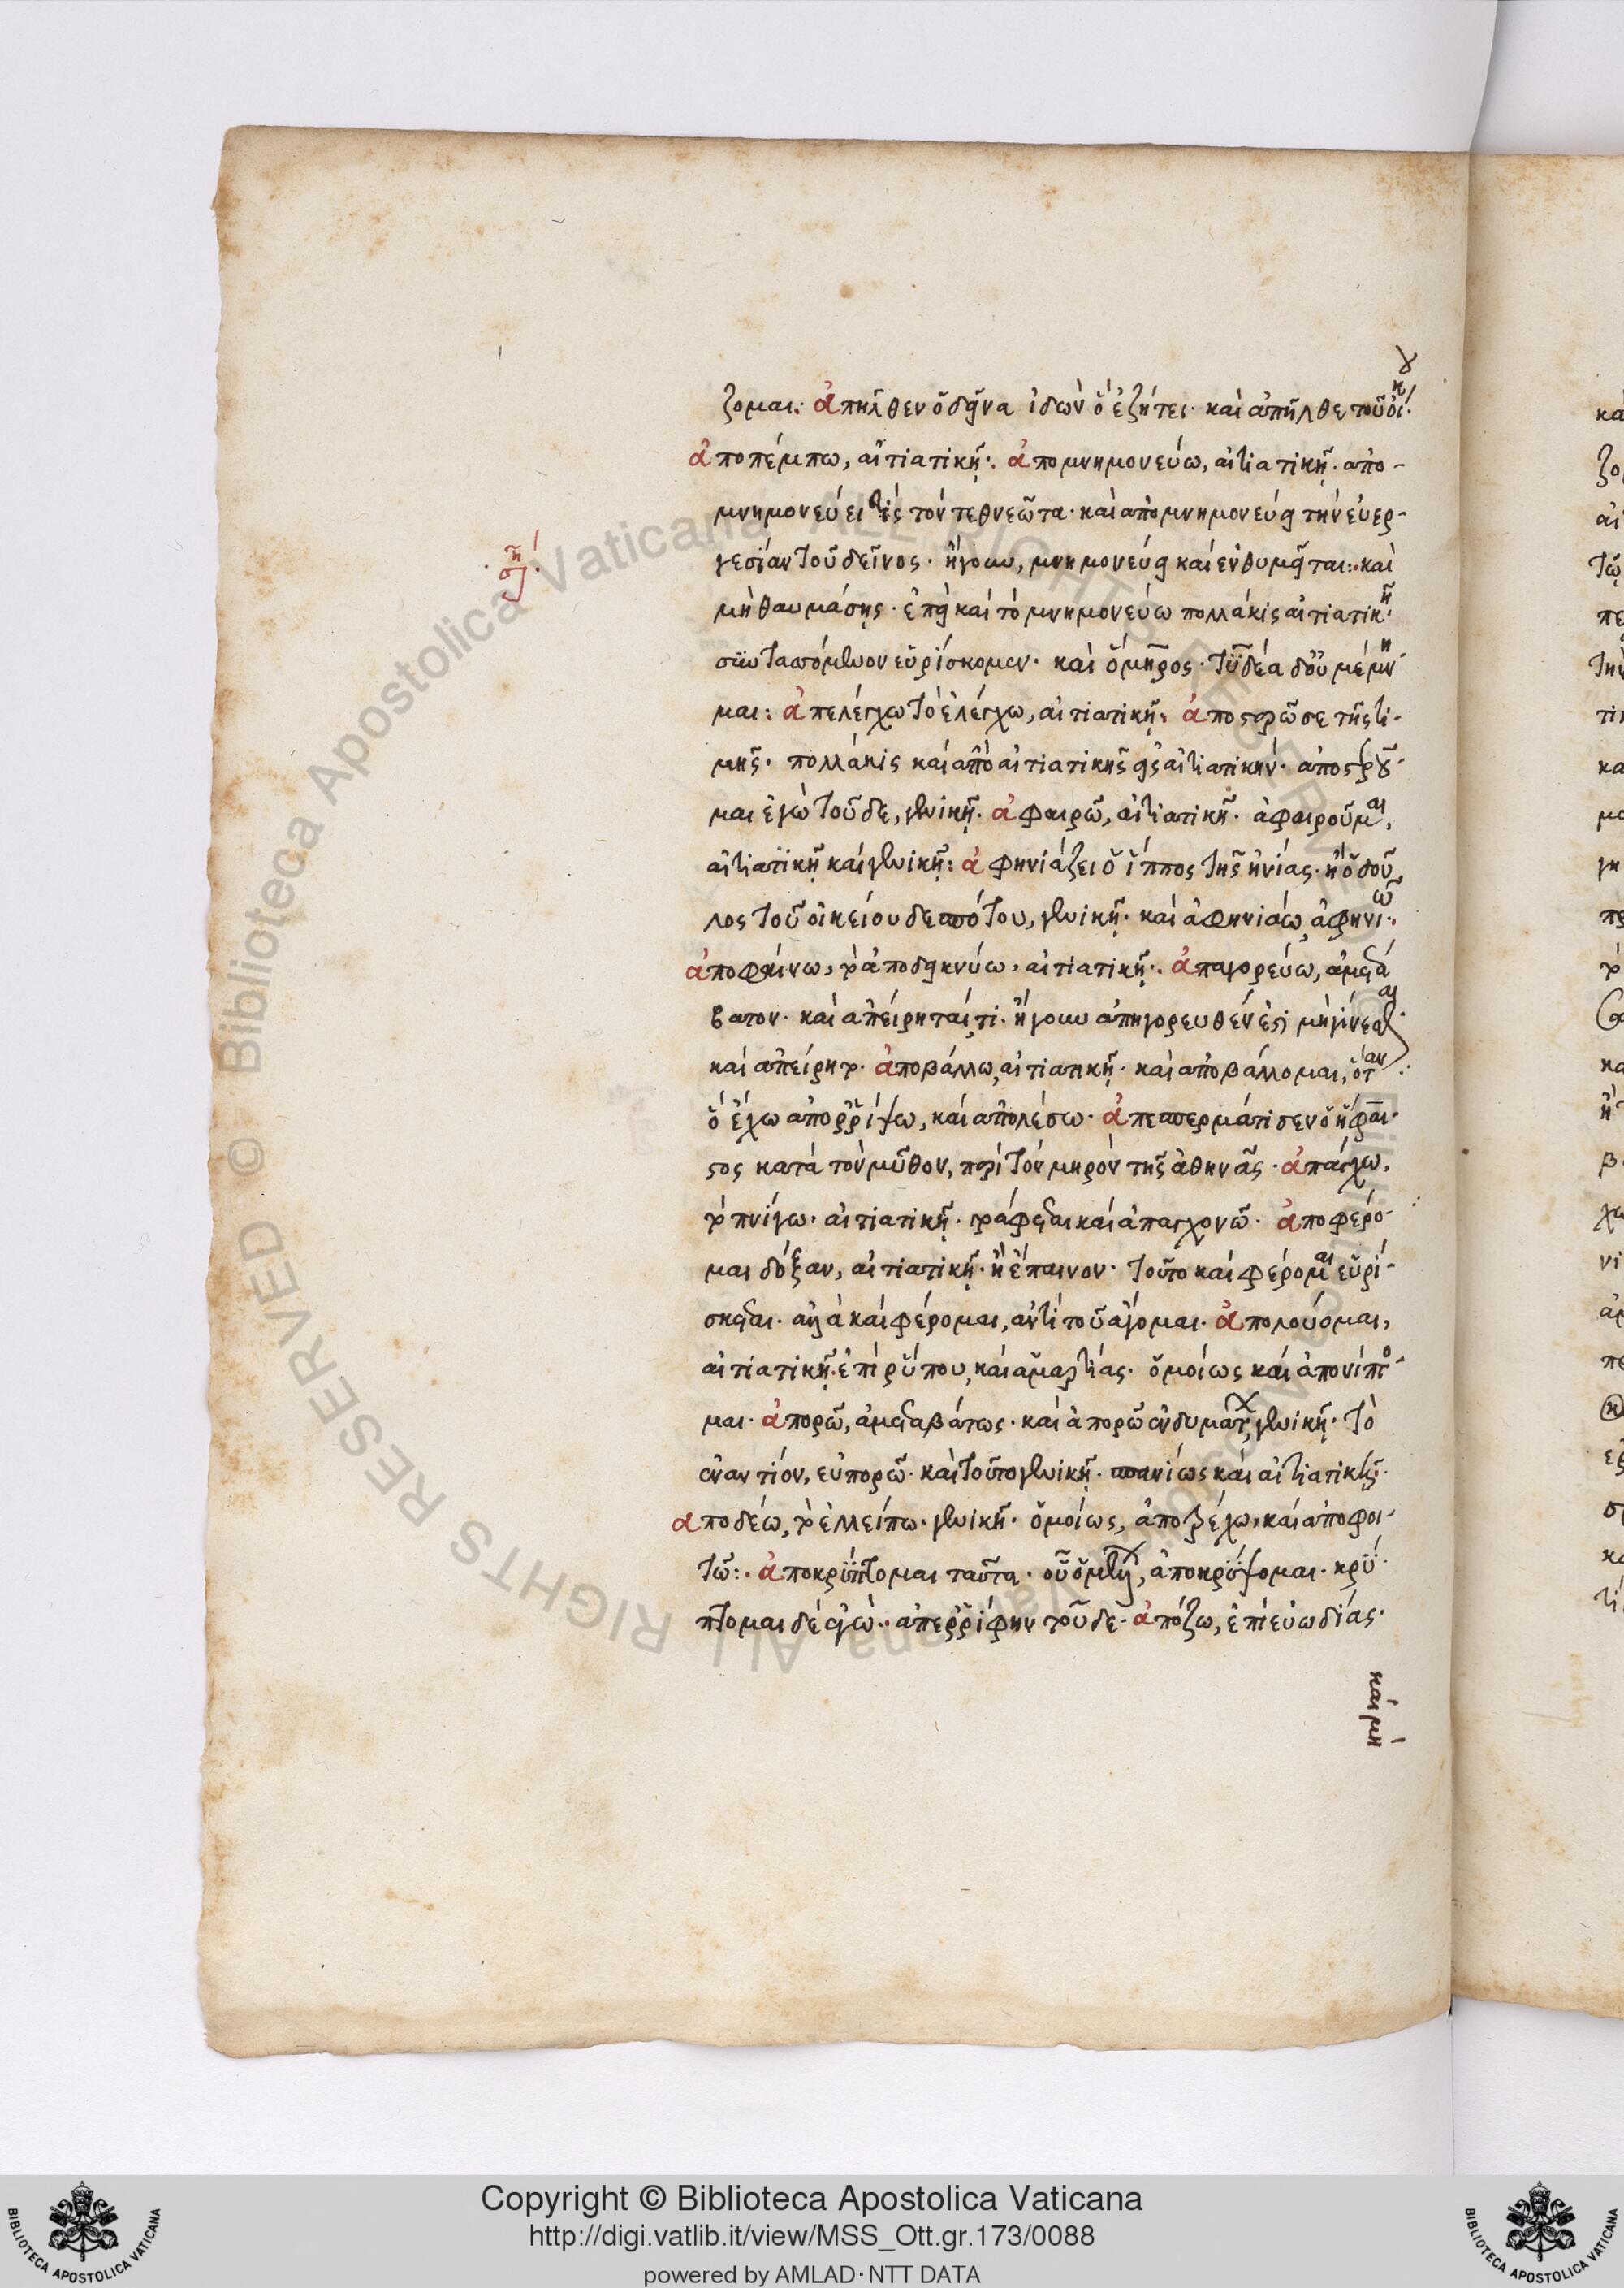 ζομαι: ἀπῆλθεν ὁ δεῖνα ἰδὼν ὃ ἐζήτει· καὶ ἀπῆλθε τοῦ
ἀποπέμπω, αἰτιατικῇ: ἀπομνημονεύω, αἰτιατικῇ. ἀπο-
μνημονεύει τίς τὸν τεθνεῶτα· καὶ ἀπομνημονεύει τὴν εὐερ-
σῆ
γεσίαν τοῦ δεῖνος· ἤγουν, μνημονεύει καὶ ἐνθυμεῖται: καὶ
μὴ θαυμάσῃς· ἐπεὶ καὶ τὸ μνημονεύω πολλάκις αἰτιατικῇ
συντασσόμενον εὑρίσκομεν· καὶ ὅμηρος· μέμνη
μαι: ἀπελέγχω τὸ ἐλέγχω, αἰτιατικῇ: ἀποστερῶ σε τῆς τι-
μῆς· πολλάκις καὶ ἀπὸ αἰτιατικῆς εἰς αἰτιατικήν· ἀποστεροῦ-
μαι ἐγὼ τοῦδε, γενικῇ. ἀφαιρῶ, αἰτιατικῇ· ἀφαιροῦμαι,
αἰτιατικῇ καὶ γενικῇ: ἀφηνιάζει ὁ ἵππος τῆς ἡνίας· ἢ ὁ δοῦ
λος τοῦ οἰκείου δεσπότου, γενικῇ· καὶ ἀφηνιάω, ἀφηνιῶ.
ἀποφαίνω, τὸ ἀποδεικνύω, αἰτιατικῇ: ἀπαγορεύω, ἀμετά
βατον· καὶ ἀπείρηταί τι· ἤγουν ἀπηγορευθέν ἐστι μὴ γίνεσθαι
καὶ ἀπείρητο. ἀποβάλλω, αἰτιατικῇ· καὶ ἀποβάλλομαι, ὅταν
ὃ ἔχω ἀπορρίψω, καὶ ἀπολέσω· ἀπεσπερμάτισεν ὁ ἥφαι-
στος κατὰ τὸν μῦθον, περὶ τὸν μηρὸν τῆς ἀθηνᾶς. ἀπάγχω,
τὸ πνίγω· αἰτιατικῇ. γράφεται καὶ ἀπαγχονῶ. ἀποφέρο-
μαι δόξαν, αἰτιατικῇ· ἢ ἔπαινον· τοῦτο καὶ φέρομαι εὑρί-
σκεται. ἀλλὰ καὶ φέρομαι, ἀντὶ τοῦ ἄγομαι. ἀπολούομαι,
αἰτιατικῇ. ἐπὶ ῥύπου, καὶ ἁμαρτίας· ὁμοίως καὶ ἀπονίπτο-
μαι. ἀπορῶ, ἀμεταβάτως· καὶ ἀπορῶ ἐνδυμάτων, γενικῇ· τὸ
ἐναντίον, εὐπορῶ· καὶ τοῦτο γενικῇ· σπανίως καὶ αἰτιατικῇ.
ἀποδέω, τὸ ἐλλείπω· γενικῇ· ὁμοίως, ἀποτρέχω, καὶ ἀποφοι-
τῶ: ἀποκρύπτομαι ταῦτα· ἀποκρύψομαι. κρύ
πτομαι δὲ ἐγώ· ἀπερρίφην τοῦδε· ἀπόζω, ἐπὶ εὐωδίας·
καὶ μὴ
Copyright © Biblioteca Apostolica Vaticana
http://digi.vatlib.it/view/MSS_Ott.gr.173/0088
powered by AMLAD·NTT DATA